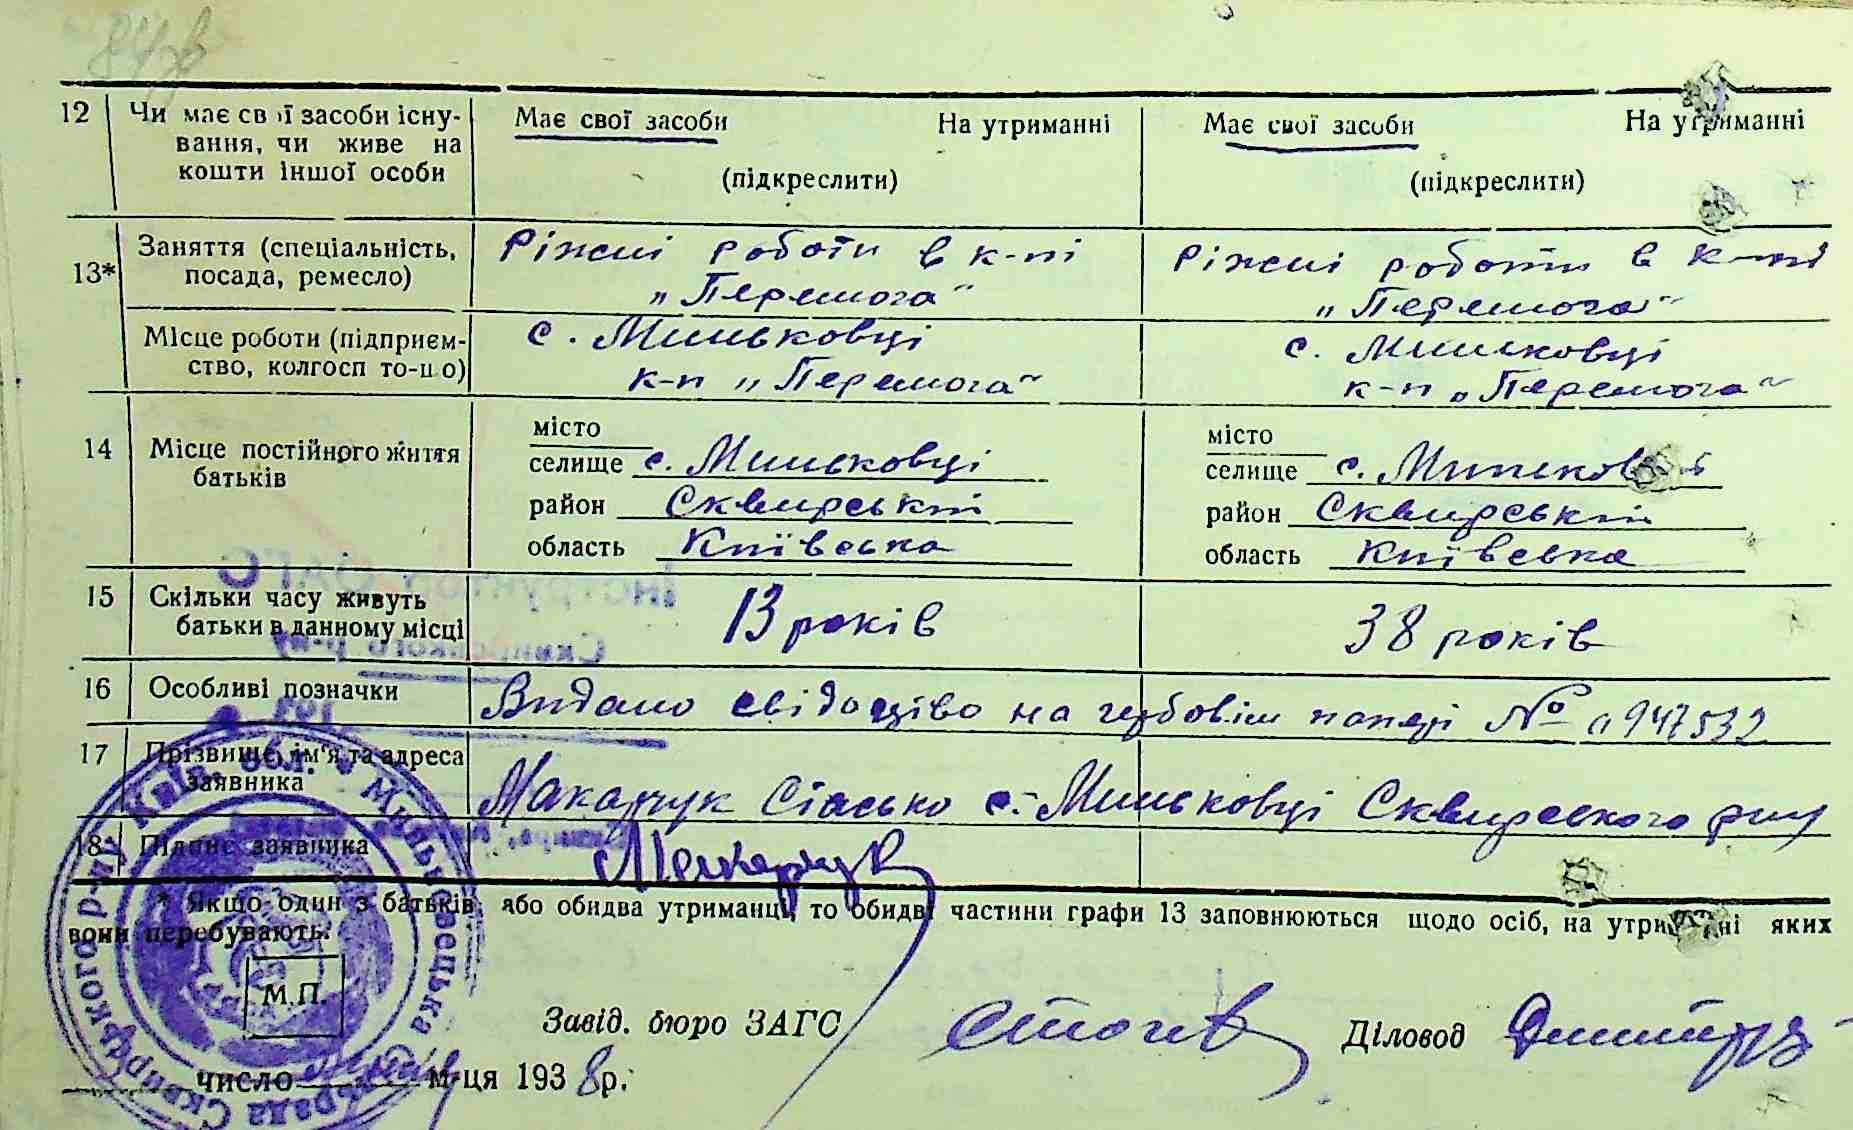 84зв
12 Чи має свої засоби існу- Має свої засоби На утриманні Має свої засоби На утриманні
вання, чи живе на
кошти іншої особи (підкреслити) (підкреслити)
13* Заняття (спеціальність, Ріжні роботи в к-пі Ріжні роботи в к-пі
посада, ремесло) „Перемога“ „Перемога“
Місце роботи (підприєм- с. Миньковці с. Миньковці
ство, колгосп то-що) к-п „Перемога“ к-п „Перемога“
14 Місце постійного життя місто місто
батьків селище с. Миньковці селище с. Миньковці
район Сквирський район Сквирський
область Київська область Київська
15 Скільки часу живуть 13 років 38 років
батьки в данному місці
16 Особливі позначки Видано свідоцтво на гербовім папері № 947532
17 Прізвище, ім'я та адреса
заявника Макарчук Стасько с. Миньковці Сквирського р-ну
18 Підпис заявника Макарчук
* Якщо один з батьків, або обидва утриманці, то обидві частини графи 13 заповнюються щодо осіб, на утриманні яких
вони перебувають.
М.П.
Завід. бюро ЗАГС Діловод
число м-ця 1938 р.
Інструктор ЗАГС
Сквирського р-ну
193
Київ. обл. Миньковецька сільрада Сквирського р-ну